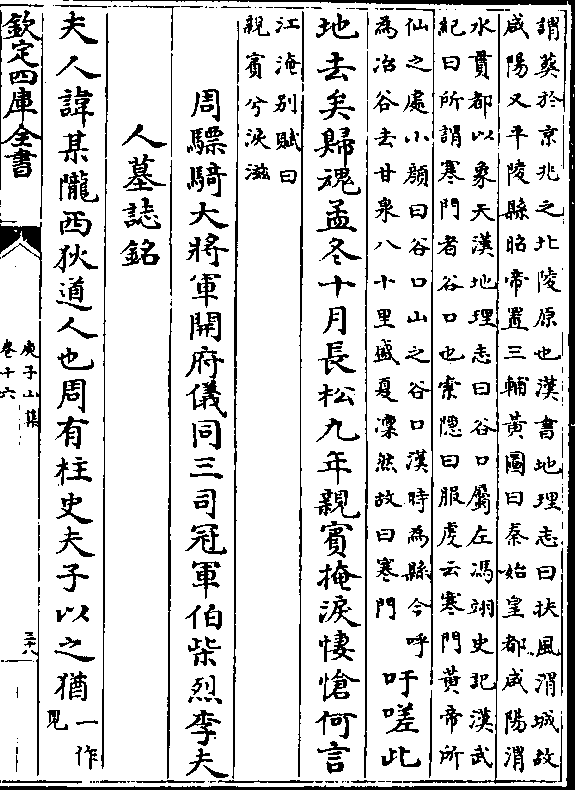 謂葬於京兆之北陵原也漢書地理志曰扶風渭城故
咸陽又平陵縣昭帝置三輔黃圖曰秦始皇都咸陽渭
水貫都以象天漢地理志曰谷口屬左馮翊史記漢武
紀曰所謂寒門者谷口也索隱曰服虔云寒門黃帝所
仙之處小顔曰谷口山之谷口漢時為縣今呼
為冶谷去甘泉八十里盛夏凜然故曰寒門
吁嗟此
地去矣歸魂孟冬十月長松九年親賓掩淚悽愴何言
江淹別賦曰
親賓兮淚滋
周驃騎大將軍開府儀同三司冠軍伯柴烈李夫
人墓誌銘
夫人諱某隴西狄道人也周有柱史夫子以之猶
一作
見
欽定四庫全書
庾子山集
卷十六
三八